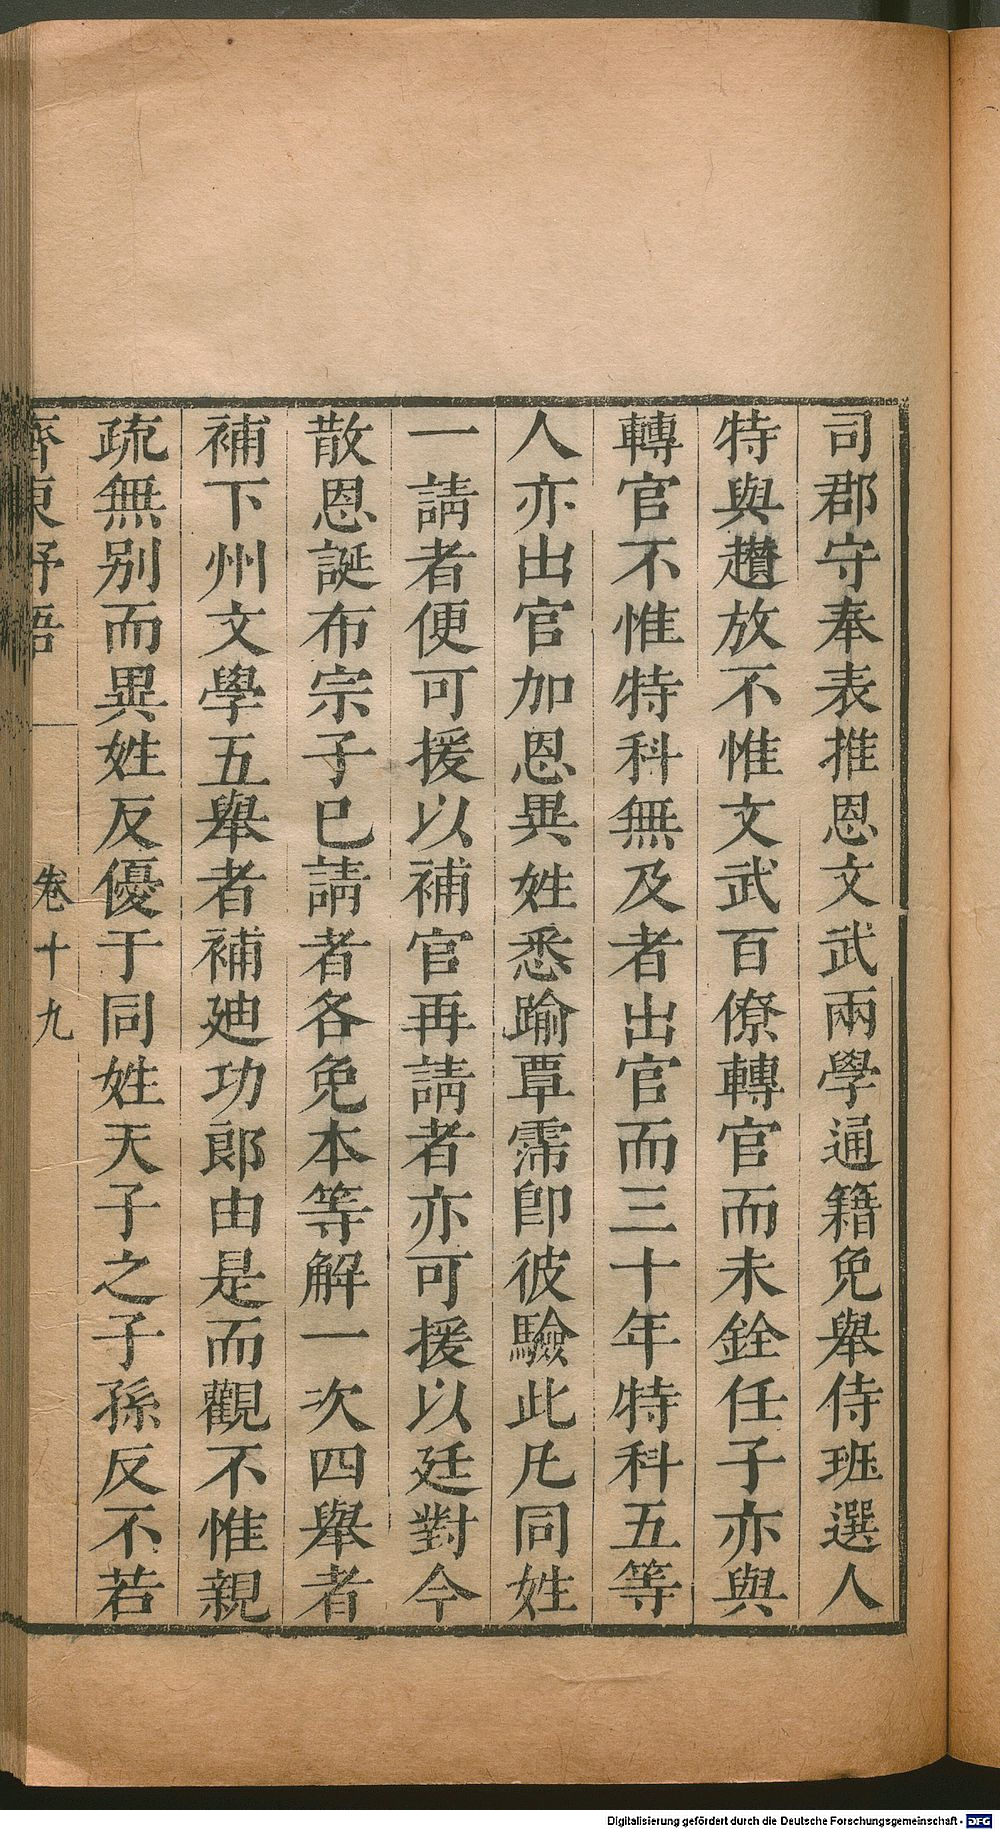 司郡守奉表推恩文武兩學通籍免舉侍班選人
特與趲放不惟文武百僚轉官而未銓任子亦與
轉官不惟特科無及者出官而三十年特科五等
人亦出官加恩異姓悉踰覃霈卽彼驗此凡同姓
一請者便可援以補官再請者亦可援以廷對今
散恩誕布宗子已請者各免本等解一次四舉者
補下州文學五舉者補廸功郎由是而觀不惟親
疏無别而異姓反優于同姓天子之子孫反不若
齊東野語
卷十九
Digitalisierung gefördert durch die Deutsche Forschungsgemeinschaft - DFG